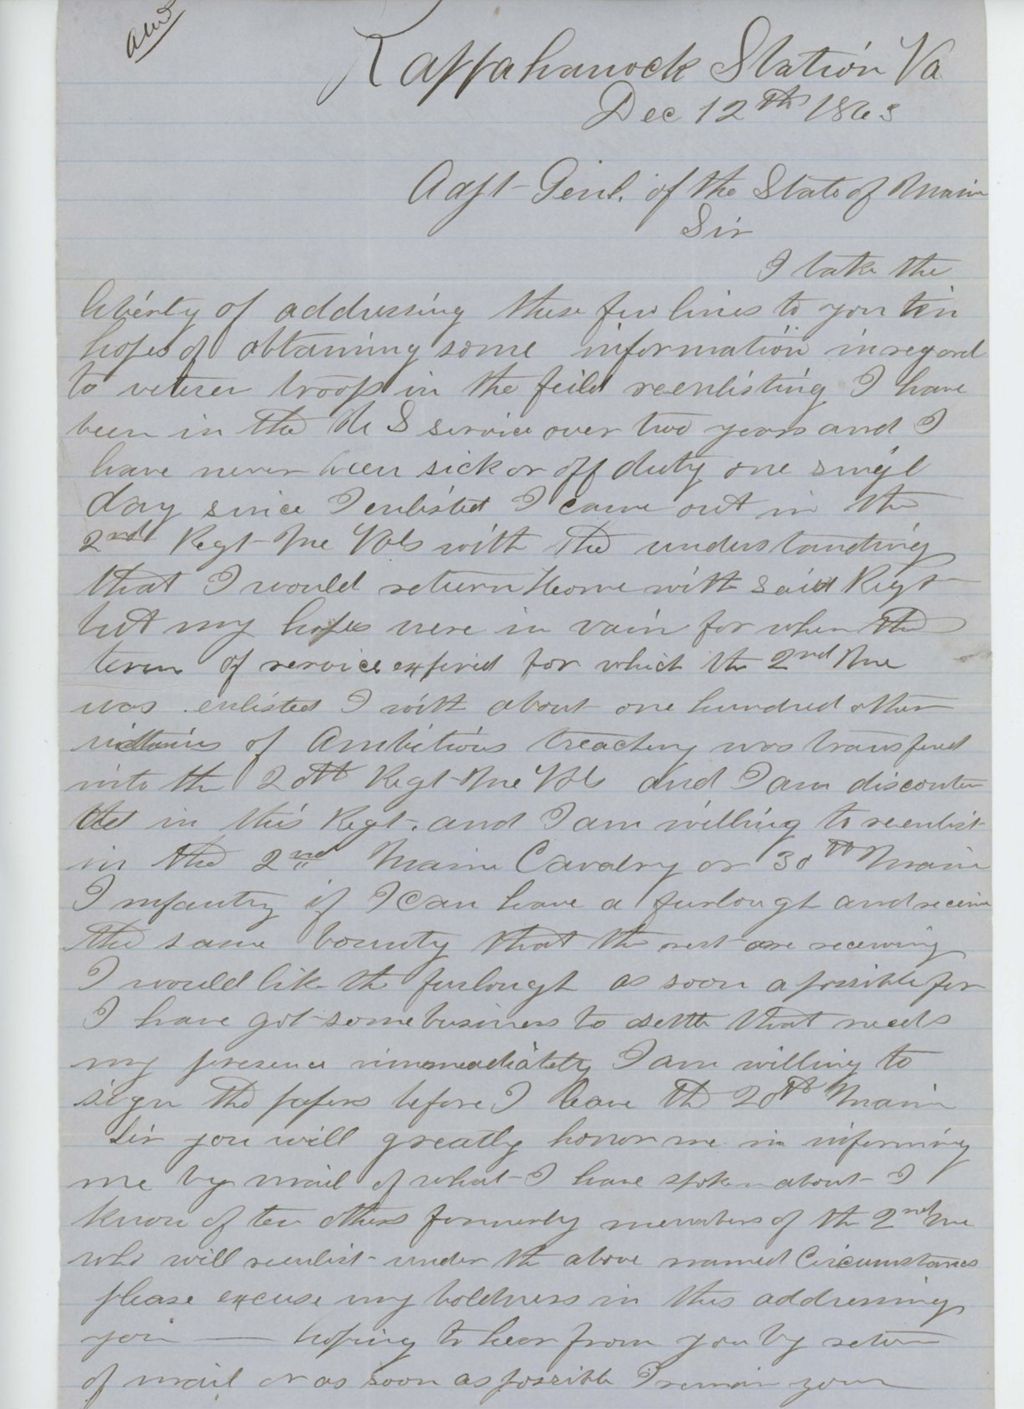 ans
Rappahanock Station Va
Dec 12th 1863
Adjt Genl. of the State of Maine
Sir
I take the
liberty of addressing these few lines to you in
hopes of obtaining some information in regard
to veteren troops in the feild reenlisting I have
been in the U S service over two years and I
have never been sick or off duty one singl
day since I enlisted I came out in the
2nd Regt Me Vols with the understanding
that I would return Home with said Regt
but my hopes were in vain for when the
term of service expired for which the 2nd Me
was enlisted I with about one hundred other
victims of Ambitious treachery was transfired
into the 20th Regt Me Vols and I am disconten
ted in this Regt. and I am willing to reenlist
in the 2nd Maine Cavalry or 30th Maine
Infantry if I Can have a furlough and receive
the same bounty that the rest are receiving
I would like the furlough as soon a possible for
I have got some business to settle that needs
my presence immediately I am willing to
sign the papers before I leave the 20th Maine
Sir you will greatly honor me in informing
me by mail of what I have spoken about I
know of ten others formerly members of the 2nd Me
who will reenlist under the above named Circumstances
please excuse my boldness in this addressing
you — hoping to hear from you by return
of mail or as soon as possible I remain your